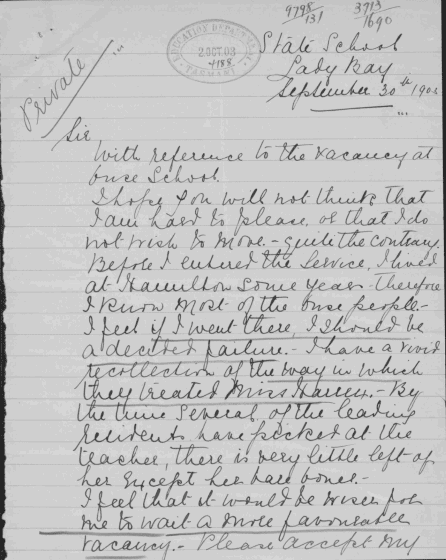 9798/131
3713/1690
EDUCATION DEPARTMENT
2.OCT.03
4188
TASMANIA
Private
State School
Lady Bay
September 30th 190
Sir,
With reference to the vacancy at
Ouse School.
I hope you will not think that
I am hard to please, or that I do
not wish to move. - quite the contrary.
Before I entered the Service, I lived
at Hamilton some years - therefore
I know most of the Ouse people. -
I feel if I went there, I should be
a decided failure. - I have a vivid
recollection of the way in which
they treated Miss - By
the time several of the leading
residents have pecked at the
teacher, there is very little left of
her except her bare bones. -
I feel that it would be wiser for
me to wait a more favourable
vacancy. - Please accept my